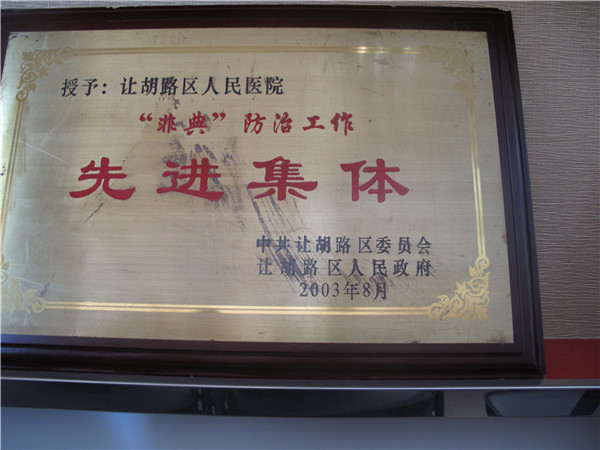 授予：让胡路区人民医院
“非典”防治工作
先进集体
中共让胡路区委员会
让胡路区人民政府
2003年8月